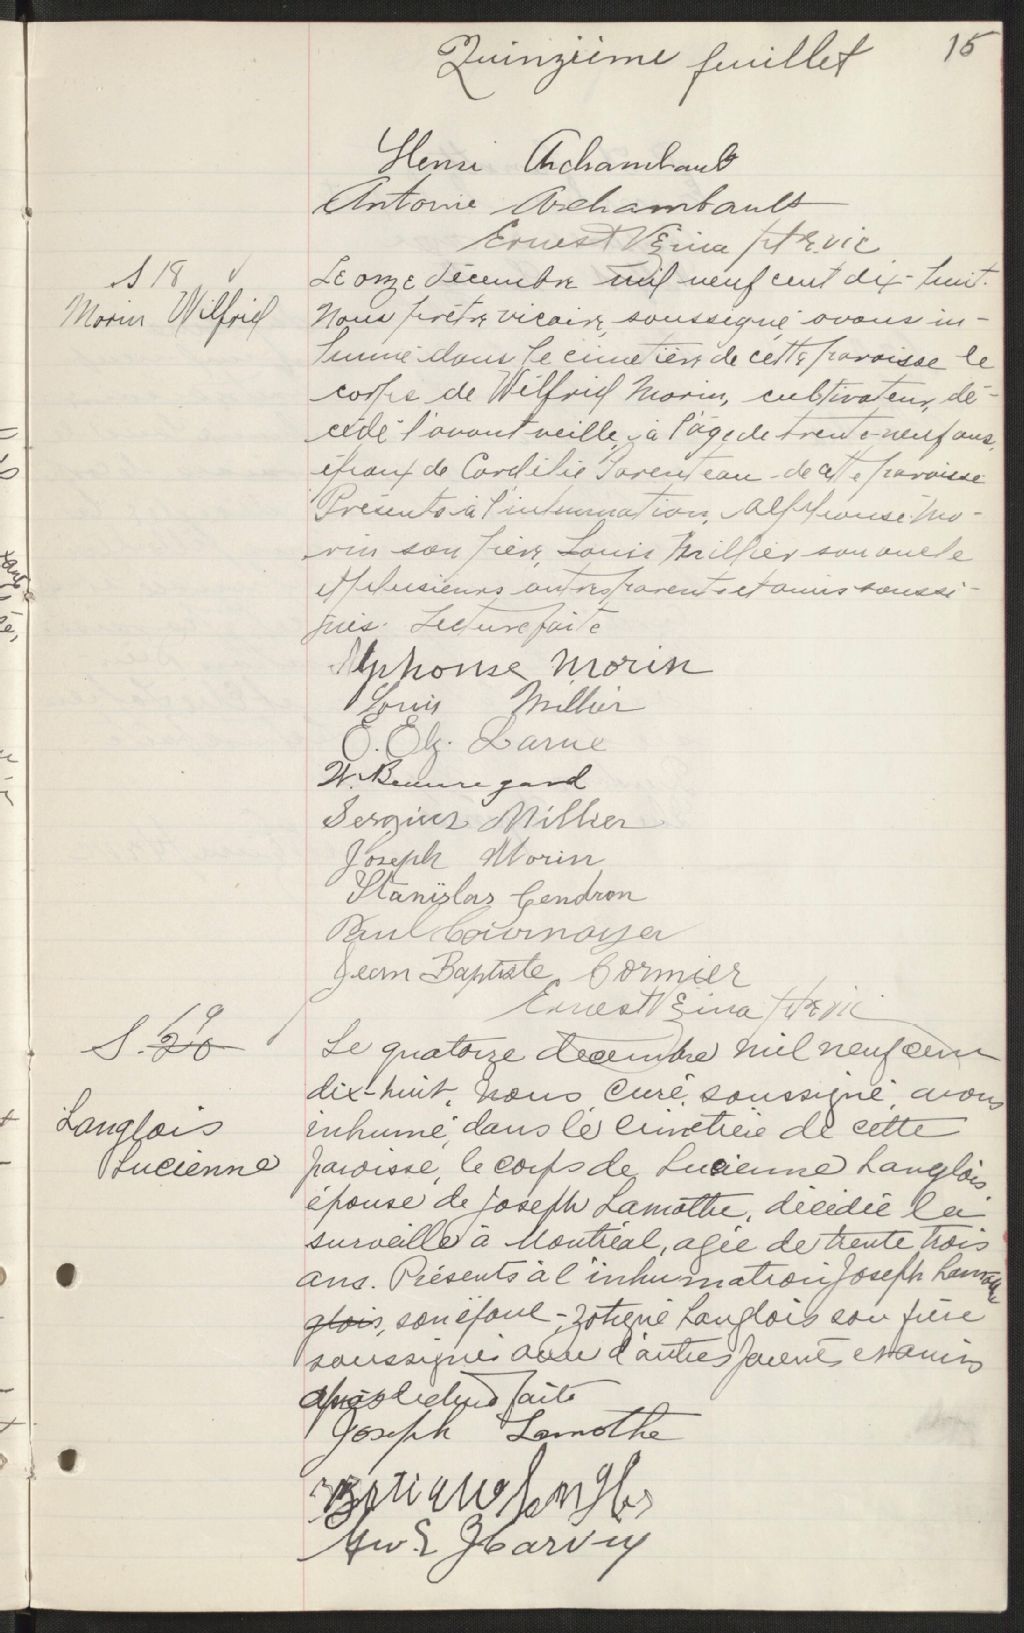 Quinzième feuillet
15
Henri Archambault
Antonie Archambault
Ernest Vézina ptre vic
S 18
Morin Wilfrid
Le onze décembre mil neuf cent dix-huit.
Nous prêtre vicaire, soussigné avons in-
humé dans le cimetière de cette paroisse le
corps de Wilfrid Morin, cultivateur, dé-
cédé l'avant veille, à l'âge de trente-neuf ans,
époux de Cordélie Parenteau de cette paroisse
Présents à l'inhumation, Alphonse Mo-
rin son frère, Louis Millier son oncle
et plusieurs autres parents et amis soussi-
gnés. Lecture faite
Alphonse Morin
Louis Millier
E. Elz. Larue
W. Beauregard
Sergius Millier
Joseph Morin
Stanislas Gendron
Paul Cournoyer
Jean Baptiste Cormier
Ernest Vézina ptre vic
S. 19 20
Langlois
Lucienne
Le quatorze decembre mil neuf cent
dix-huit, nous curé, soussigné, avons
inhumé, dans le cimetière de cette
paroisse, le corps de Lucienne Langlois
épouse de Joseph Lamothe, décédée la
surveille à Montréal, agée de trente trois
ans. Présents à l'inhumation Joseph Lamothe
glois, son époux, Zotique Langlois son frère
soussignés avec d'autres parents et amis
après lecture faite
Joseph Lamothe
Harvey